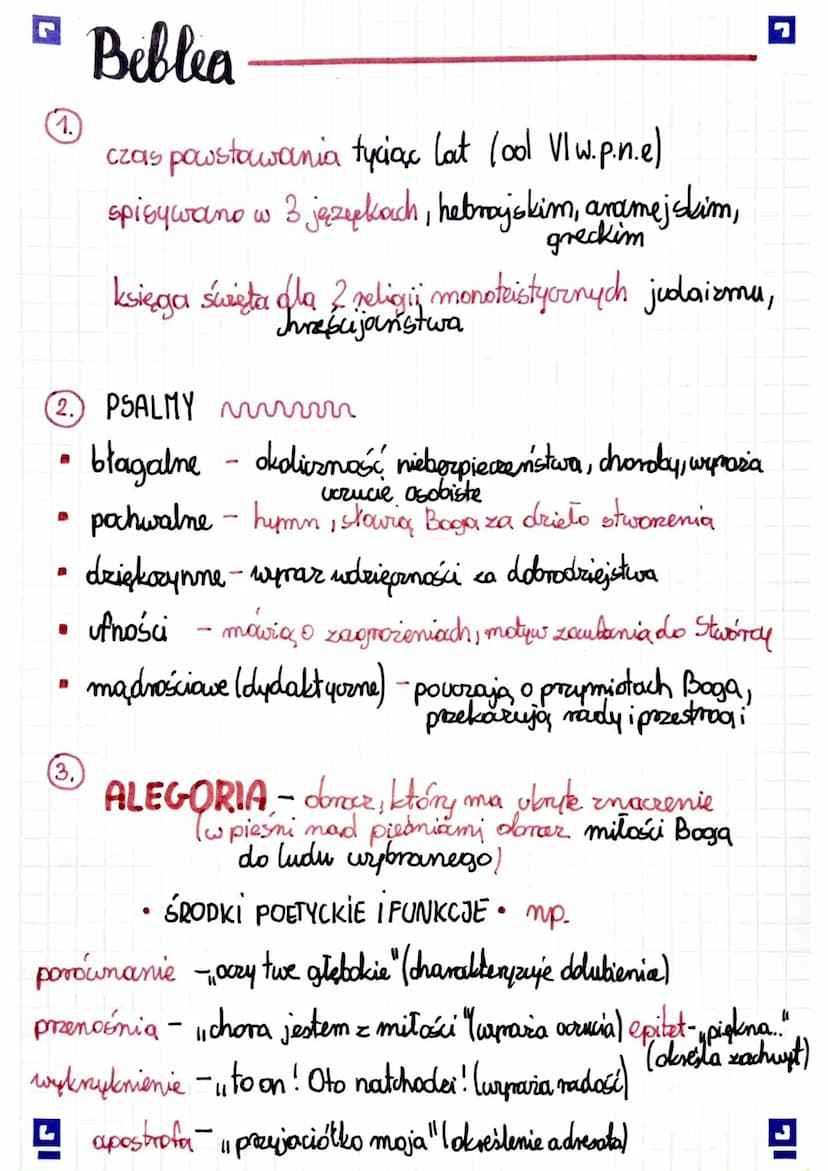 Biblia
1.
czas powstawania tyciąc lat (od VI w.p.n.e)
spisywano w 3 językach, hebrajskim, aramejskim,
greckim
księga święta dla 2 religii monoteistycznych judaizmu,
chrześcijaństwa
2. PSALMY
▪ błagalne - okoliczność niebezpieczeństwa, choroby, wyraża
uczucie osobiste
▪ pochwalne - hymn, sławią Boga za dzieło stworzenia
▪ dziękczynne - wyraz wdzięczności za dobrodziejstwa
▪ ufności - mówią o zagrożeniach, motyw zaufania do Stwórcy
▪ mądrościowe (dydaktyczne) - pouczają o przymiotach Boga,
przekazują rady i przestrogi
3.
ALEGORIA - obraz, który ma ukryte znaczenie
(w pieśni nad pieśniami obraz miłości Boga
do ludu wybranego)
• ŚRODKI POETYCKIE I FUNKCJE • np.
porównanie - „oczy twe głębokie" (charakteryzuje oblubienia)
przenośnia - „chora jestem z miłości" (wyraża uczucia) epitet - „piękna.."
(określa zachwyt)
wykrzyknienie - „to on! Oto nadchodzi! (wyraża radość)
apostrofa - „przyjaciółko moja" (określenie adresata)